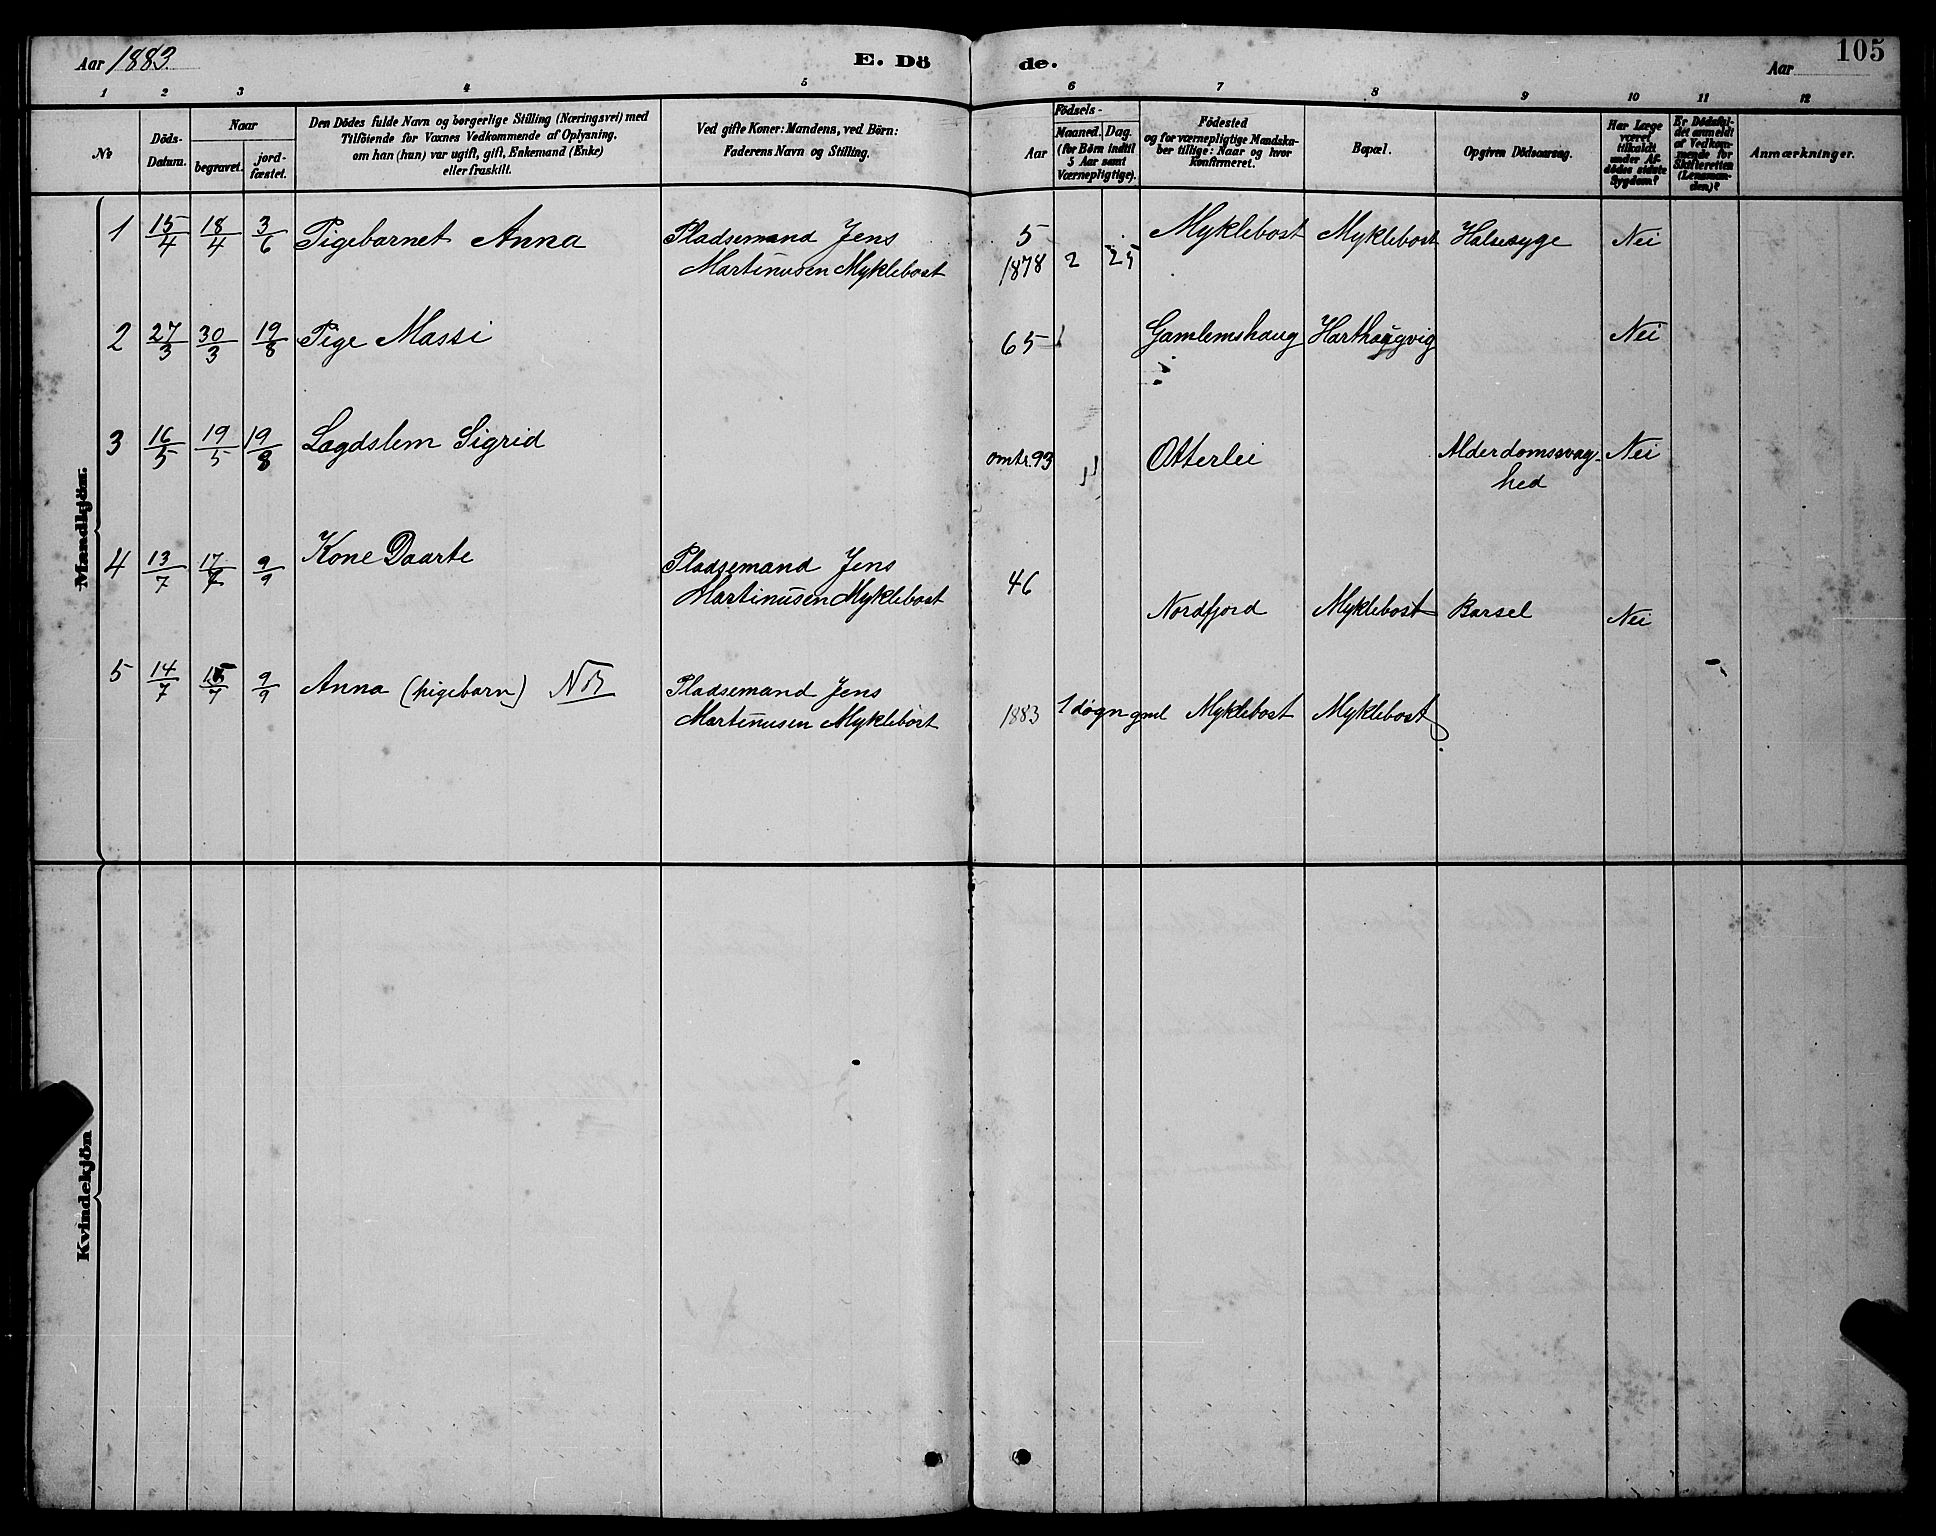 Aar 1883.
E. Dö
de.
Aar
105
1 2 3 4 5 6 7 8 9 10 11 12
№
Döds-
Datum.
Naar
begravet.
jord-
fæstet.
Den Dödes fulde Navn og borgerlige Stilling (Næringsvei) med
Tilföiende for Voxnes Vedkommende af Oplysning,
om han (hun) var ugift, gift, Enkemand (Enke)
eller fraskilt.
Ved gifte Koner: Mandens, ved Börn:
Faderens Navn og Stilling.
Födsels-
Aar
Maaned. Dag.
(for Börn indtil
5 Aar samt
Værnepligtige).
Födested
og for værnepligtige Mandska-
ber tillige: Naar og hvor
Konfirmeret.
Bopæl.
Opgiven Dödsaarsag.
Har Læge
været
tilkaldt
under Af-
dödes sidste
Sygdom?
Er Dödsfal-
det anmeldt
af Vedkom-
mende for
Skifteretten
(Lensman-
den)?
Anmærkninger.
Mandkjön.
1 15/4 18/4 3/6 Pigebarnet Anna Pladsemand Jens 5 Myklebost Myklebost Halssyge Nei
Martinusen Myklebost 1878 2 25
2 27/3 30/3 19/8 Pige Massi 65 Gamlemshaug Harthaugvig Nei
3 16/5 19/5 19/8 Lægdslem Sigrid omtr. 93 Otterlei Alderdomssvag- Nei
hed
4 13/7 17/7 9/9 Kone Daarte Pladsemand Jens 46
Martinusen Myklebost Nordfjord Myklebost Barsel Nei
5 14/7 15/7 9/9 Anna (pigebarn) Pladsemand Jens
Martinusen Myklebost 1883 1 døgn gml Myklebost Myklebost
Kvindekjön